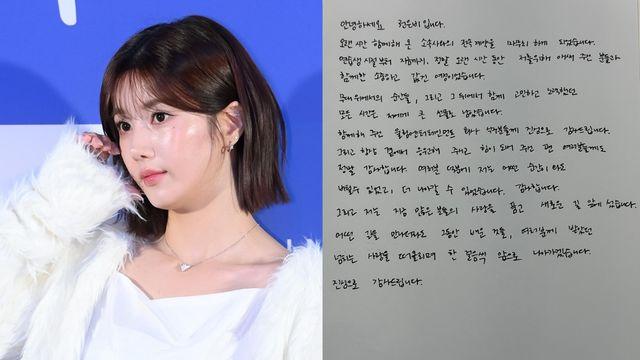 안녕하세요 권은비입니다.
오랜 시간 함께해 온 소속사와의 전속계약을 마무리 하게 되었습니다.
연습생 시절부터 지금까지, 정말 오랜 시간 동안 저를위해 애써 주신 분들과
함께한 소중하고 값진 여정이었습니다.
무대 위에서의 순간들, 그리고 그 뒤에서 함께 고민하고 노력했던
모든 시간은 저에게 큰 선물로 남았습니다.
함께해 주신 울림엔터테인먼트 회사 식구분들께 진심으로 감사드립니다.
그리고 항상 곁에서 응원해 주시고 힘이 되어 주신 팬 여러분들께도
정말 감사합니다. 여러분 덕분에 저는 어떤 순간이 와도
버틸수 있었고, 더 나아갈 수 있었습니다. 감사합니다.
그리고 저는 지금 많은분들의 사랑을 품고 새로운 길 앞에 섰습니다.
어떤 길을 만나더라도 그동안 배운 것들, 여러분께 받았던
넘치는 사랑을 떠올리며 한 걸음씩 앞으로 나아가겠습니다.
진심으로 감사드립니다.